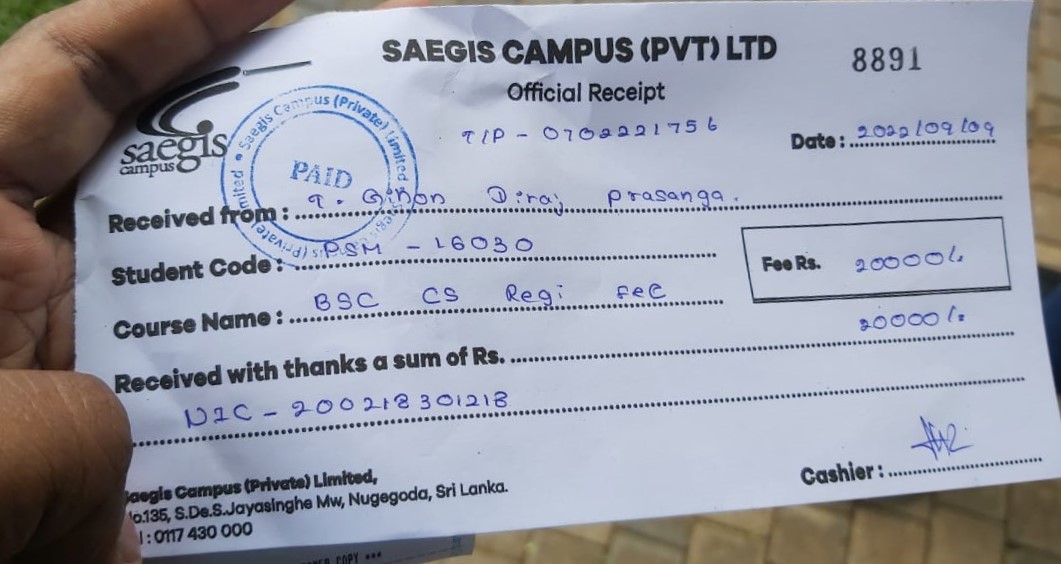 SAEGIS CAMPUS (PVT) LTD
8891
Official Receipt
saegis
campus
T/P - 0702221756
Date: 2022/09/09
Saegis Campus (Private) Limited
PAID
Received from: Diraj Prasanga.
Student Code: PSM - 16030
Fee Rs. 20000/=
Course Name: BSC CS Regi fee
Received with thanks a sum of Rs. 20000/=
NIC - 200218301218
Cashier:
Saegis Campus (Private) Limited,
No.135, S.De.S.Jayasinghe Mw, Nugegoda, Sri Lanka.
: 0117 430 000
COPY ***